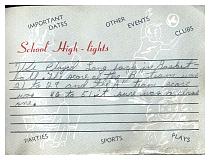 IMPORTANT DATES
OTHER EVENTS
CLUBS
School High-lights
We Played Long Jack in Basket
ball. The score of the "B" team was
21 to 27 and the "A" team score
was to was a close
one.
PARTIES
SPORTS
PLAYS